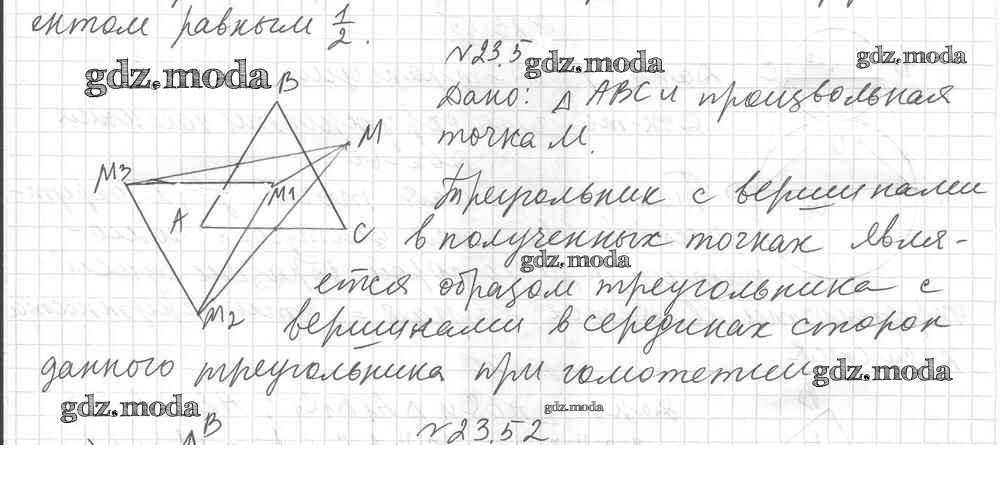 ентом равным 1/2.
№23.5
gdz.moda
gdz.moda
gdz.moda
Дано: Δ ABC и произвольная
точка М.
B
M
M3
M1
A
C
M2
Треугольник с вершинами
в полученных точках явля-
gdz.moda
ется образом треугольника с
вершинами в серединах сторон
данного треугольника при гомотетии
gdz.moda
gdz.moda
gdz.moda
B
№23.52